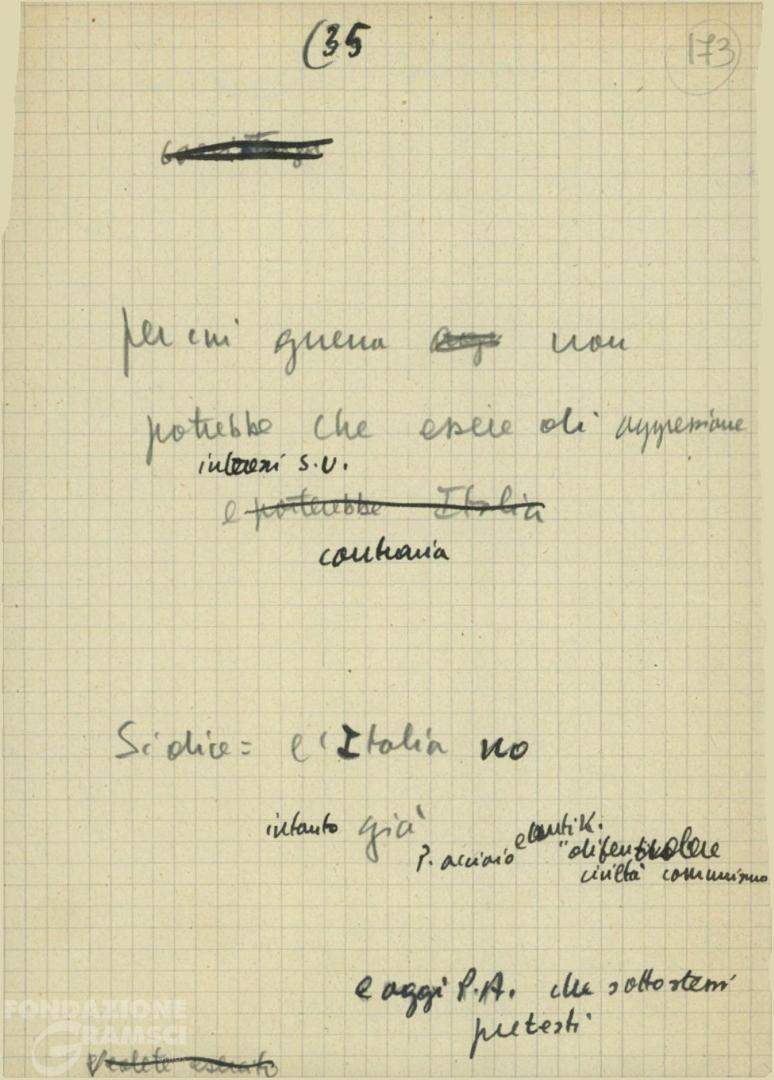 (35
173
per cui guerra non
potrebbe che essere di aggressione
interessi S.U.
e potterebbe Italia
contraria
Si dice = e l'Italia no
intanto già
P. acciaio e antik.
"difen volere
civiltà comunismo
e oggi P.A. che sotto stessi
pretesti
FONDAZIONE
GRAMSCI